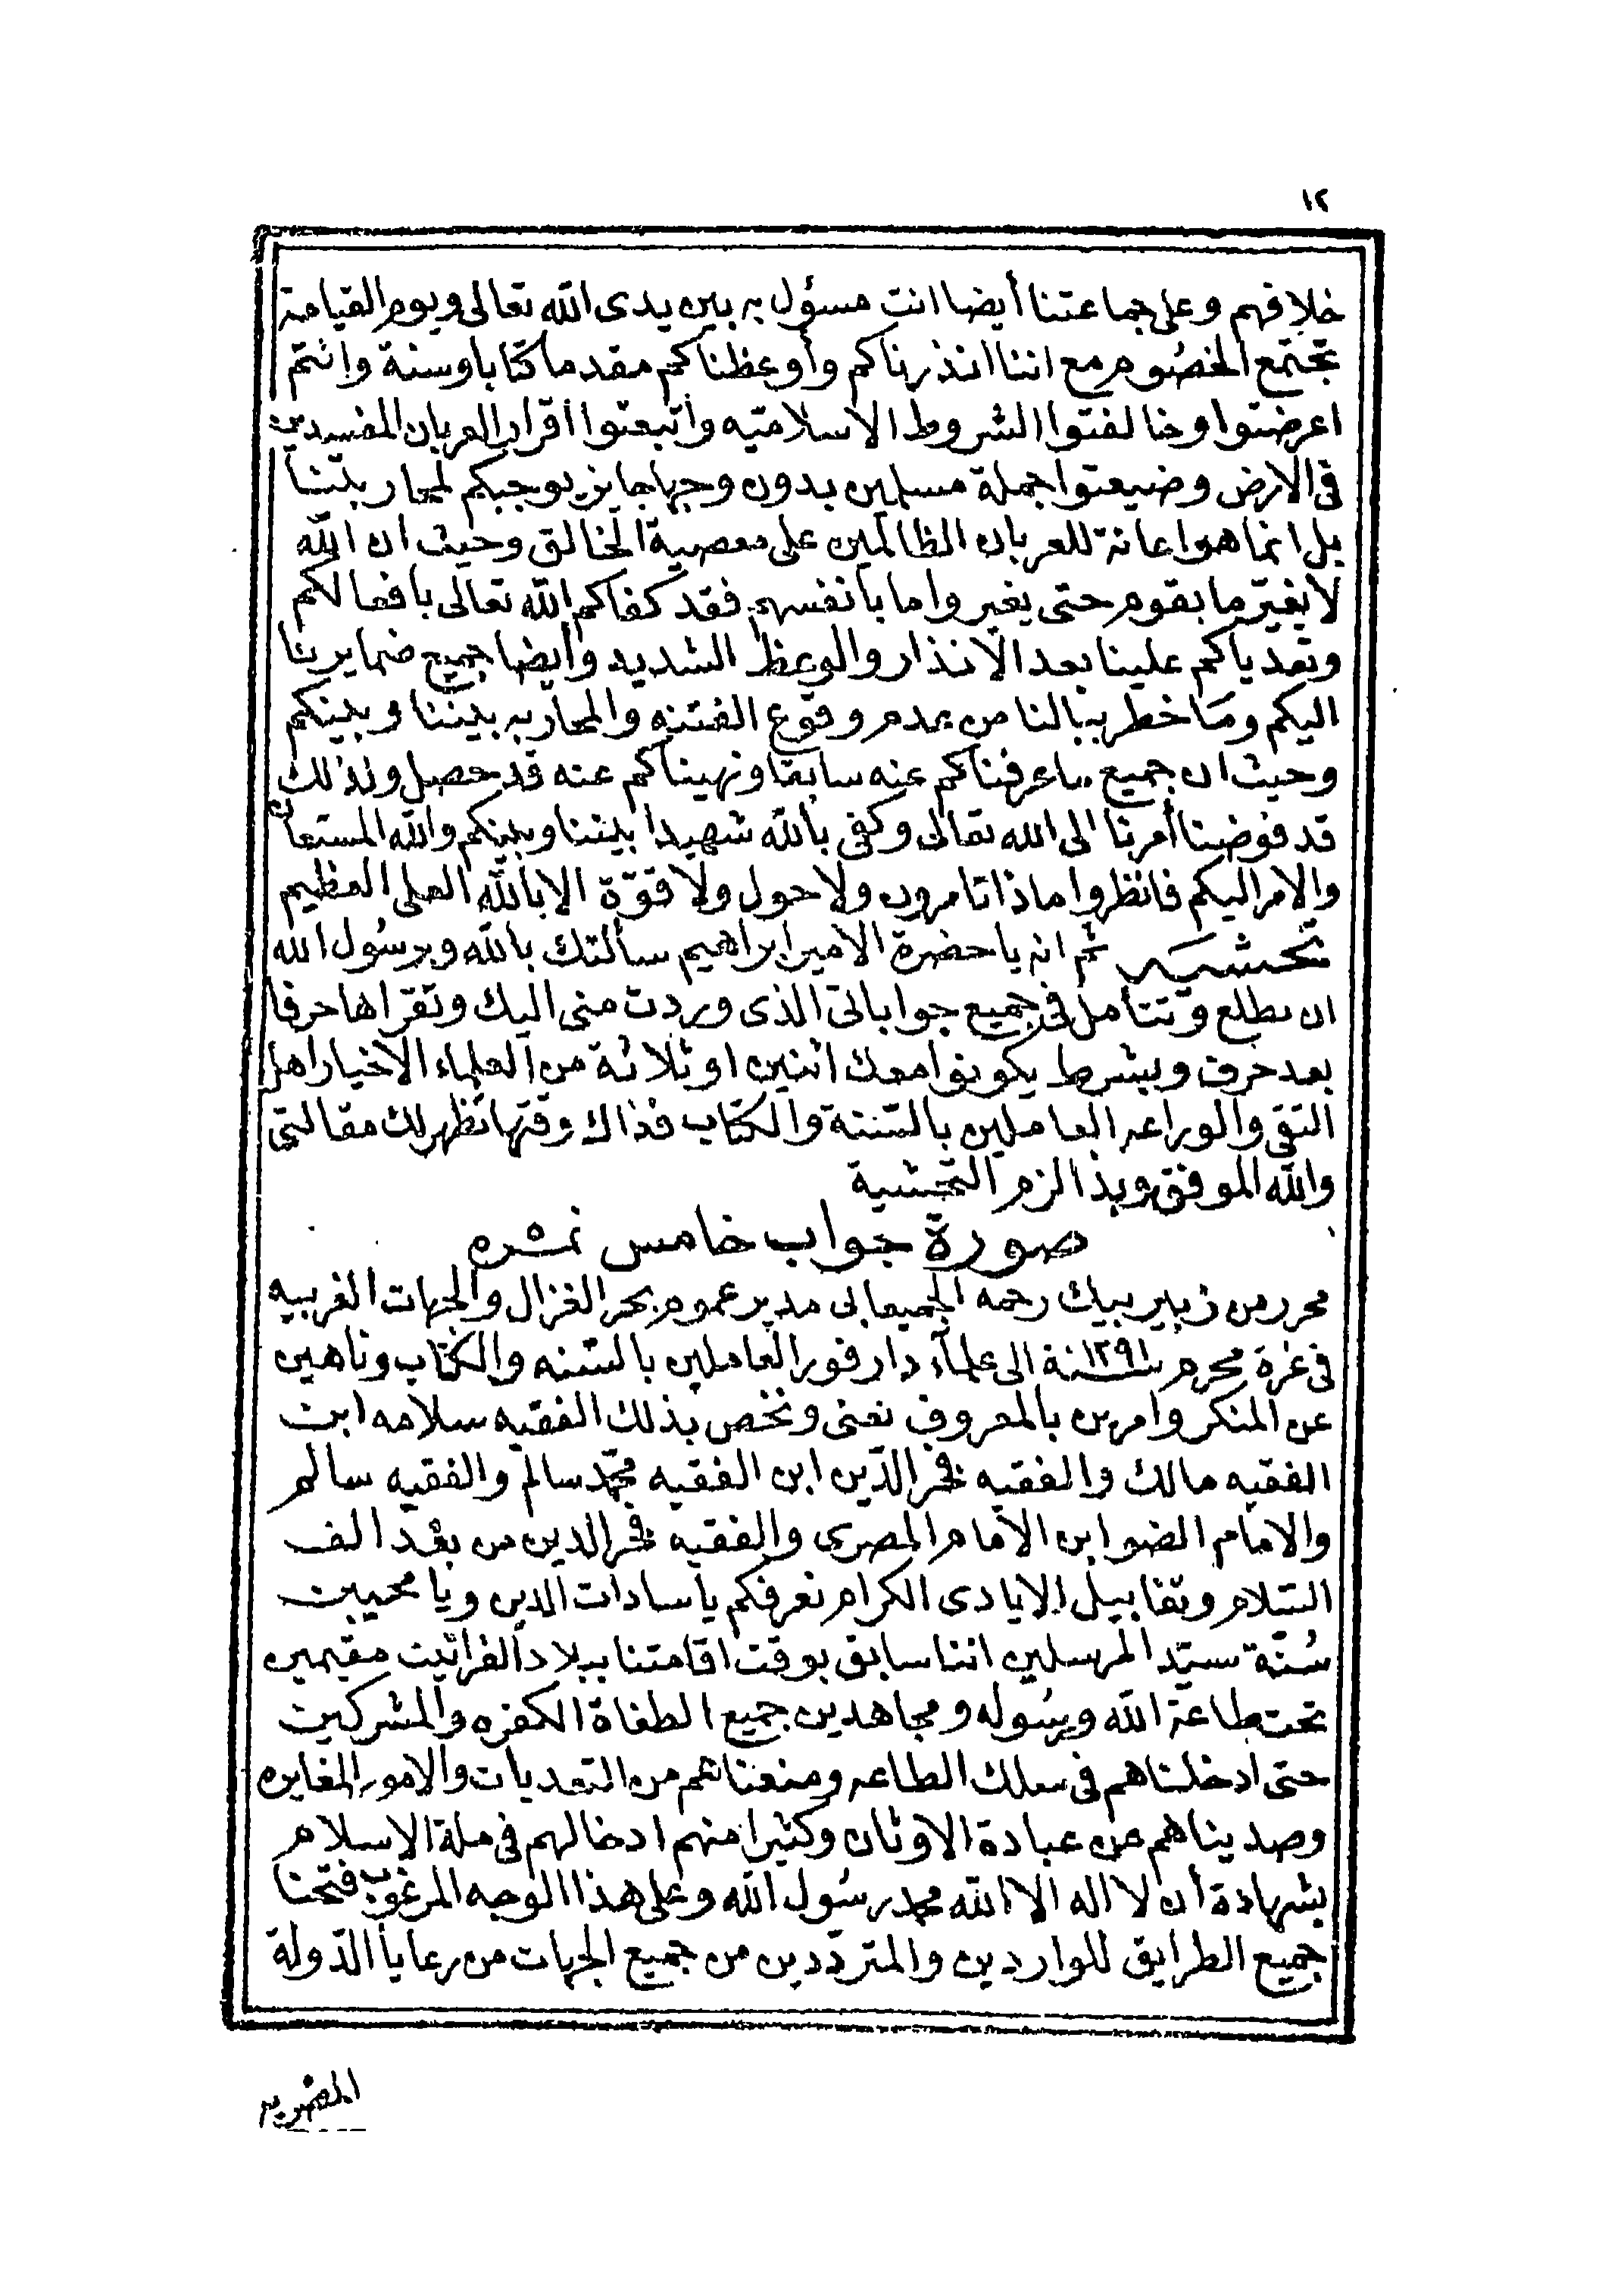 ١٢
خلافهم وعلى جماعتنا أيضا انت مسؤل به بين يدى الله تعالى ويوم القيامة
تجتمع الخصُوم مع اننا انذرناكم وأوعظناكم مقدما كتابا وسنة وانتم
اعرضتوا وخالفتوا الشروط الاسلاميّه واتبعتوا أقرار العربان المفسدين
فى الارض وضيعتوا جملة مسلمين بدون وجها جايز يوجبكم لمحاربتنا
بل انما هو اعانة للعربان الظالمين على معصية الخالق وحيث ان الله
لا يغيّر ما بقوم حتى يغيروا ما بأنفسهم فقد كفاكم الله تعالى بافعالكم
وتعدياكم علينا بعد الانذار والوعظ الشديد وأيضا جميع ضمايرنا
اليكم ومَا خطر ببالنا من عدم وقوع الفتنه والمحاربه بيننا وبينكم
وحيث ان جميع ما عرفناكم عنه سابقا ونهيناكم عنه قد حصل ولذلك
قد فوضنا أمرنا الى الله تعالى وكفى بالله شهيدا بيننا وبينكم والله المستعان
والامر اليكم فانظروا ماذا تامرون ولا حول ولا قوّة الا بالله العلى العظيم
تحشيه ثم انه يا حضرة الامير ابراهيم سألتك بالله وبرسُول الله
ان تطلع وتتأمل فى جميع جواباتى الذى وردت منى اليك وتقراها حرفا
بعد حرف وبشرط يكونوا معك اثنين او ثلاثة من العلماء الاخيار اهل
التقى والوراعه العاملين بالسّنة والكتاب فذاك وقتها تظهر لك مقالتى
والله الموفق وبذا لزم التحشية
صورة جواب خامس نمره ٥
محرر من زبير بيك رحمه الجميعابى مدير عموم بحر الغزال والجهات الغربيه
فى غرة محرم سنة ١٢٩١ الى علمآء دارفور العاملين بالسنه والكتاب وناهين
عن المنكر وامرين بالمعروف نعنى ونخص بذلك الفقيه سلامه ابن
الفقيه مالك والفقيه فخر الدّين ابن الفقيه محمّد سالم والفقيه سالم
والامام الضو ابن الامام المصرى والفقيه فخر الدين من بعد الف
السّلام وتقابيل الايادى الكرام نعرفكم يا سادات الدين ويا محيين
سُنّة سيّد المرسلين اننا سابق بوقت اقامتنا ببلاد الفراتيت مقيمين
تحت طاعة الله ورسُوله ومجاهدين جميع الطغاة الكفره والمشركين
حتى ادخلناهم فى سلك الطاعه ومنعناهم من التعديات والامور المغايره
وصديناهم عن عبادة الاوثان وكثيرا منهم ادخالهم فى ملة الاسلام
بشهادة أن لا اله الا الله محمد رسُول الله وعلى هذا الوجه المرغوب فتحنا
جميع الطرايق للواردين والمتردّدين من جميع الجهات من رعايا الدّولة
المصريه